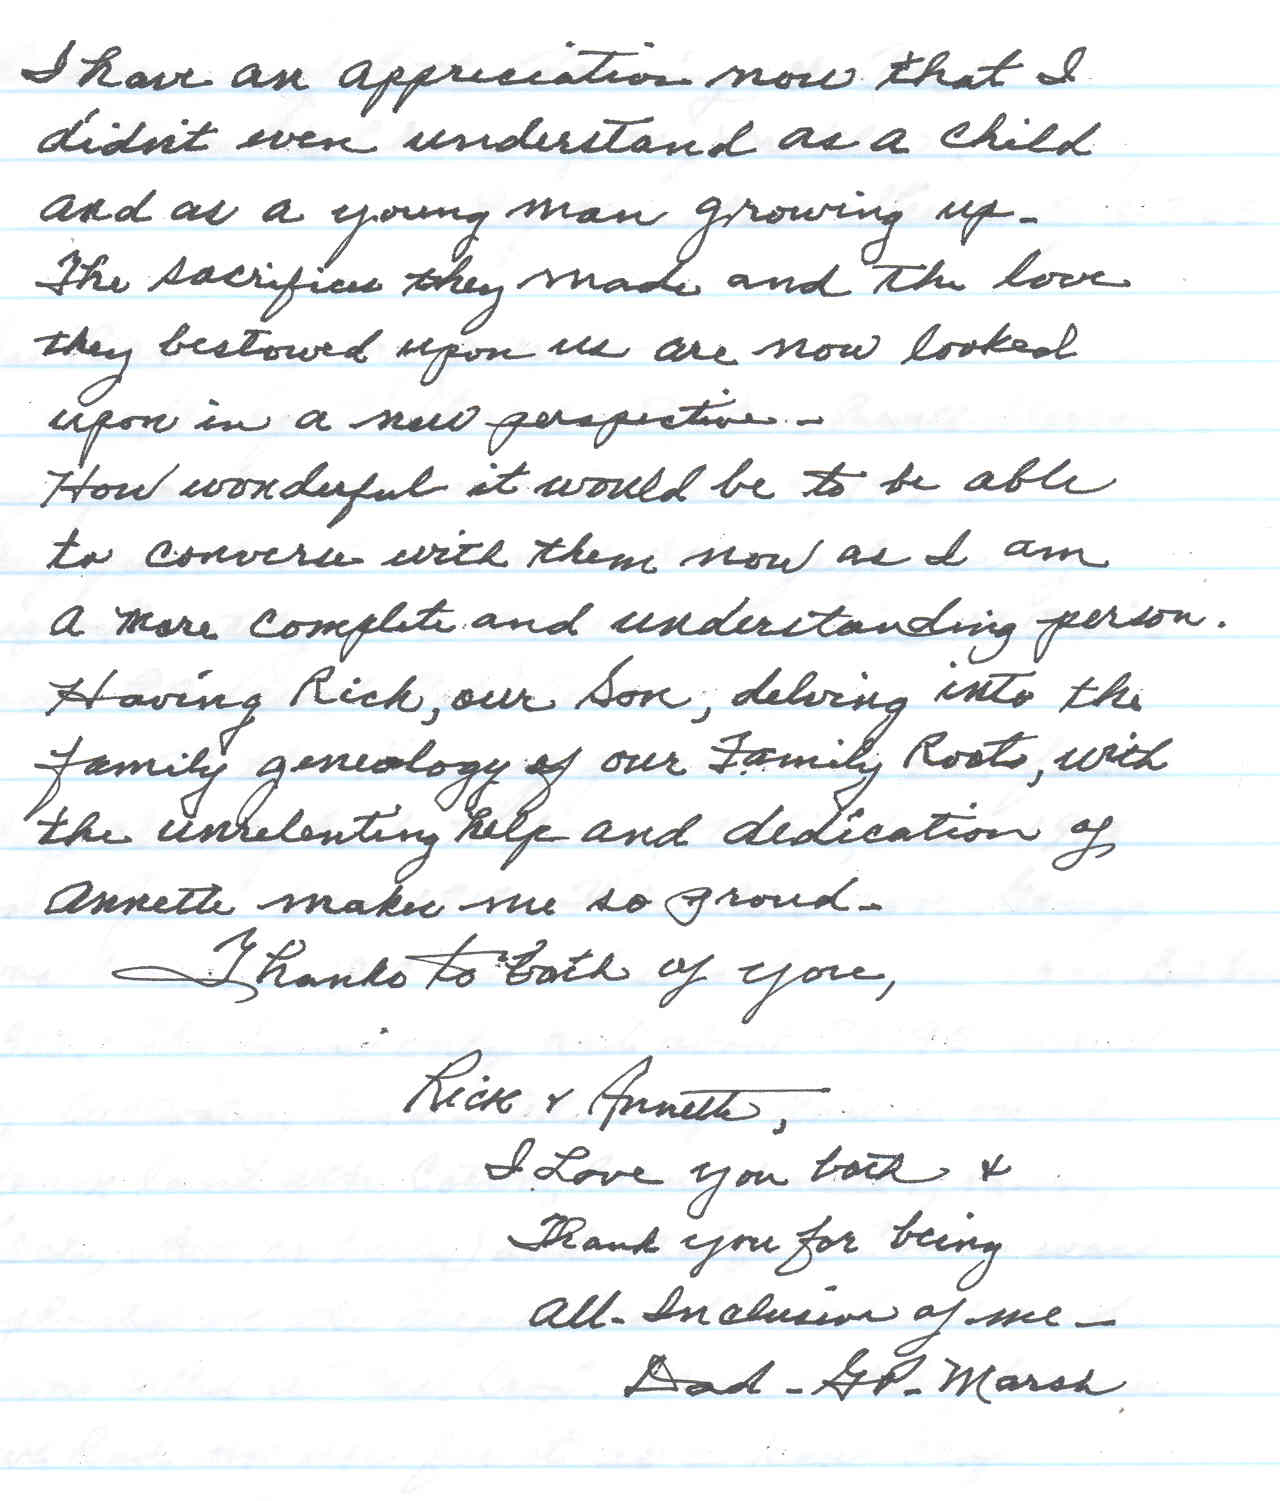 I have an appreciation now that I
didn't even understand as a child
and as a young man growing up-
The sacrifices they made and the love
they bestowed upon us are now looked
upon in a new perspective-
How wonderful it would be to be able
to converse with them now as I am
a more complete and understanding person.
Having Rick, our Son, delving into the
family genealogy of our Family Roots, with
the unrelenting help and dedication of
Annette makes me so proud-
Thanks to both of you,
Rick & Annette,
I Love you both &
Thank you for being
all-Inclusive of me-
Dad-GP-Marsh